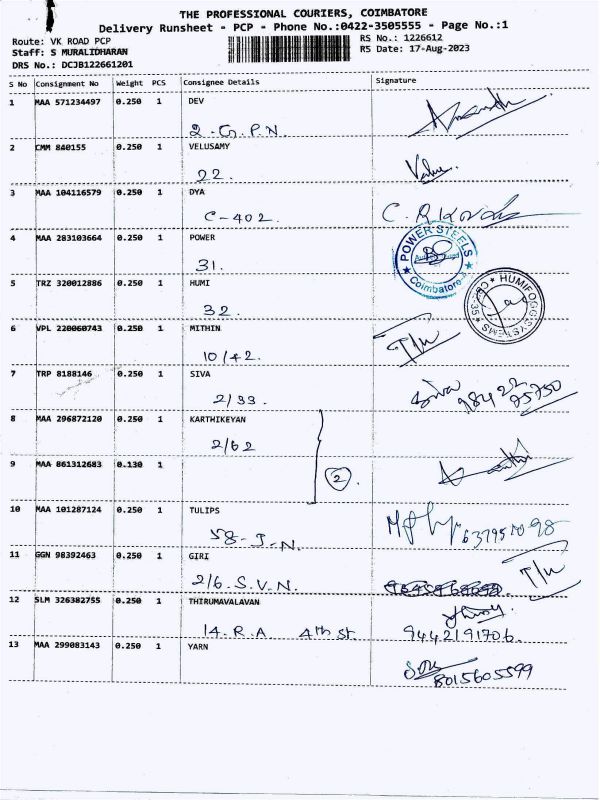 THE PROFESSIONAL COURIERS, COIMBATORE
Delivery Runsheet - PCP - Phone No.:0422-3505555 - Page No.:1
Route: VK ROAD PCP RS No.: 1226612
Staff: S MURALIDHARAN RS Date: 17-Aug-2023
DRS No.: DCJB122661201
S No Consignment No Weight PCS Consignee Details Signature
1 MAA 571234497 0.250 1 DEV
2-G.P.N.
2 CMM 840155 0.250 1 VELUSAMY
22.
3 MAA 104116579 0.250 1 DYA
C-402.
4 MAA 283103664 0.250 1 POWER
31.
POWER STEELS
Coimbatore
5 TRZ 320012886 0.250 1 HUMI
32.
HUMIFOGG SYSTEMS
6 VPL 220060743 0.250 1 MITHIN
10/42.
7 TRP 8188146 0.250 1 SIVA
2/33. Siva 98422 75750
8 MAA 296872120 0.250 1 KARTHIKEYAN
2/62
9 MAA 861312683 0.130 1
2.
10 MAA 101287124 0.250 1 TULIPS
58-J-N.
11 GGN 98392463 0.250 1 GIRI
2/6.S.V.N.
12 SLM 326382755 0.250 1 THIRUMAVALAVAN
14.R.A 4th st. 9442191706.
13 MAA 299083143 0.250 1 YARN
8015605599